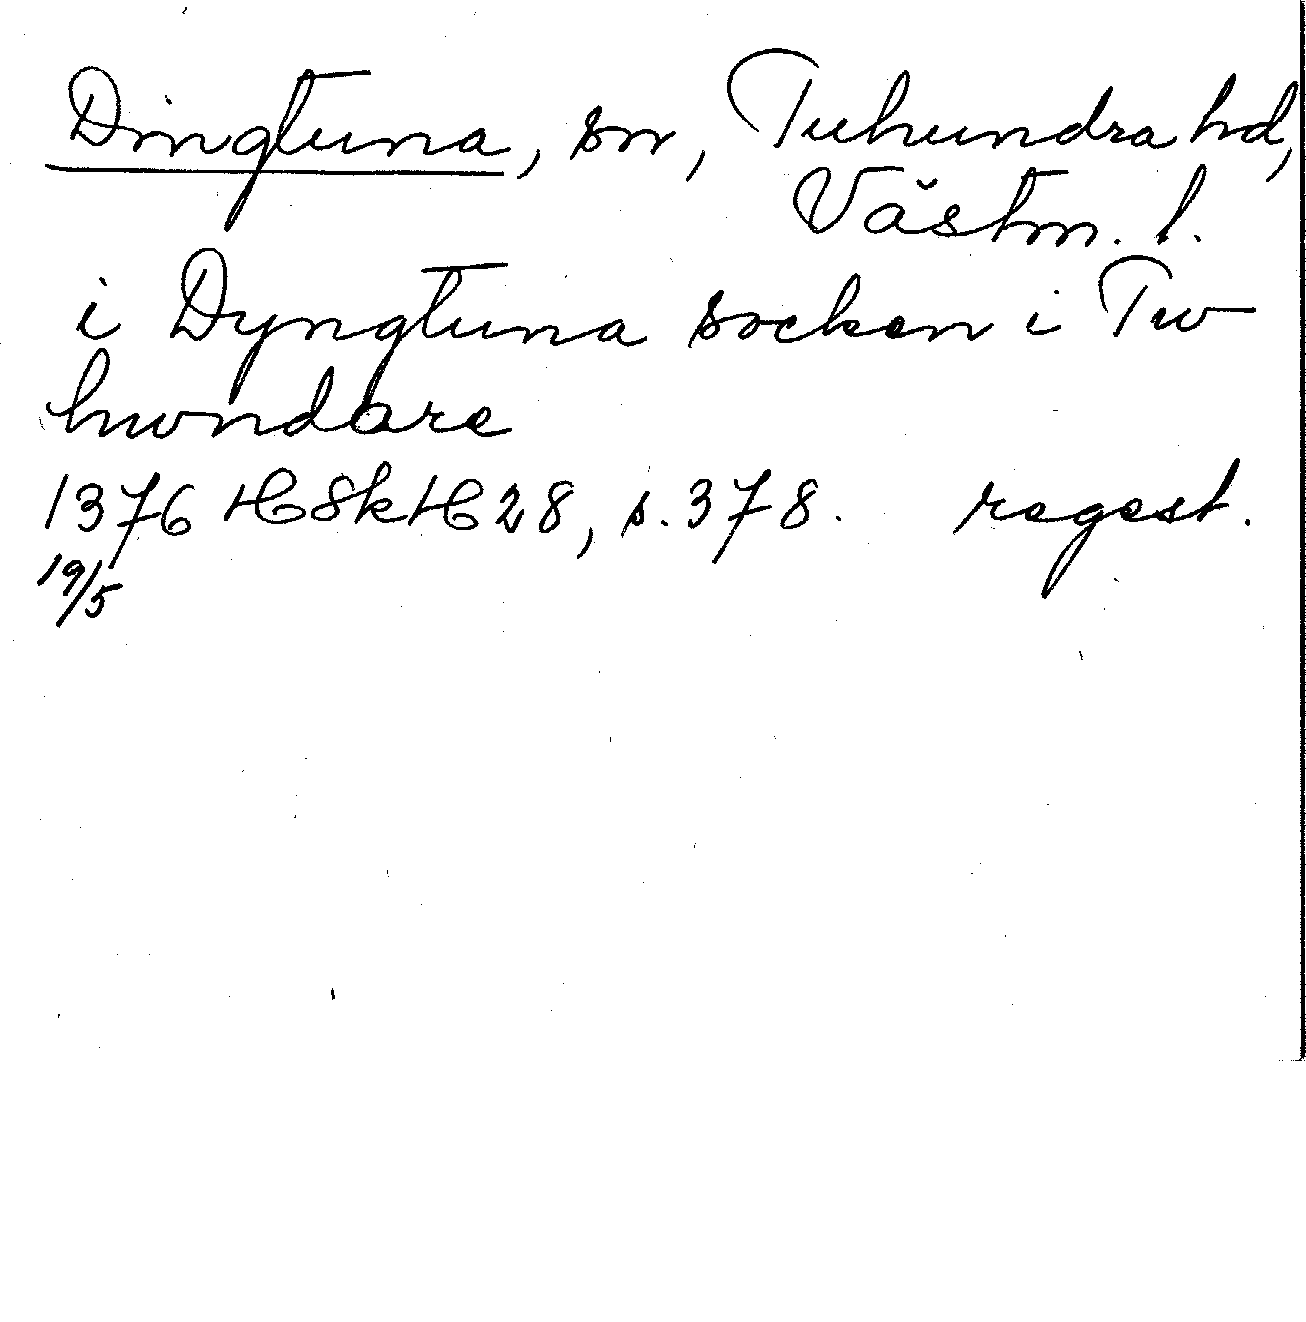 Dingtuna, sn, Tuhundra hd,
Västm. l.
i Dyngtuna socken i Tw
hwndare
1376 HSkH 28, s. 378. regest.
19/5